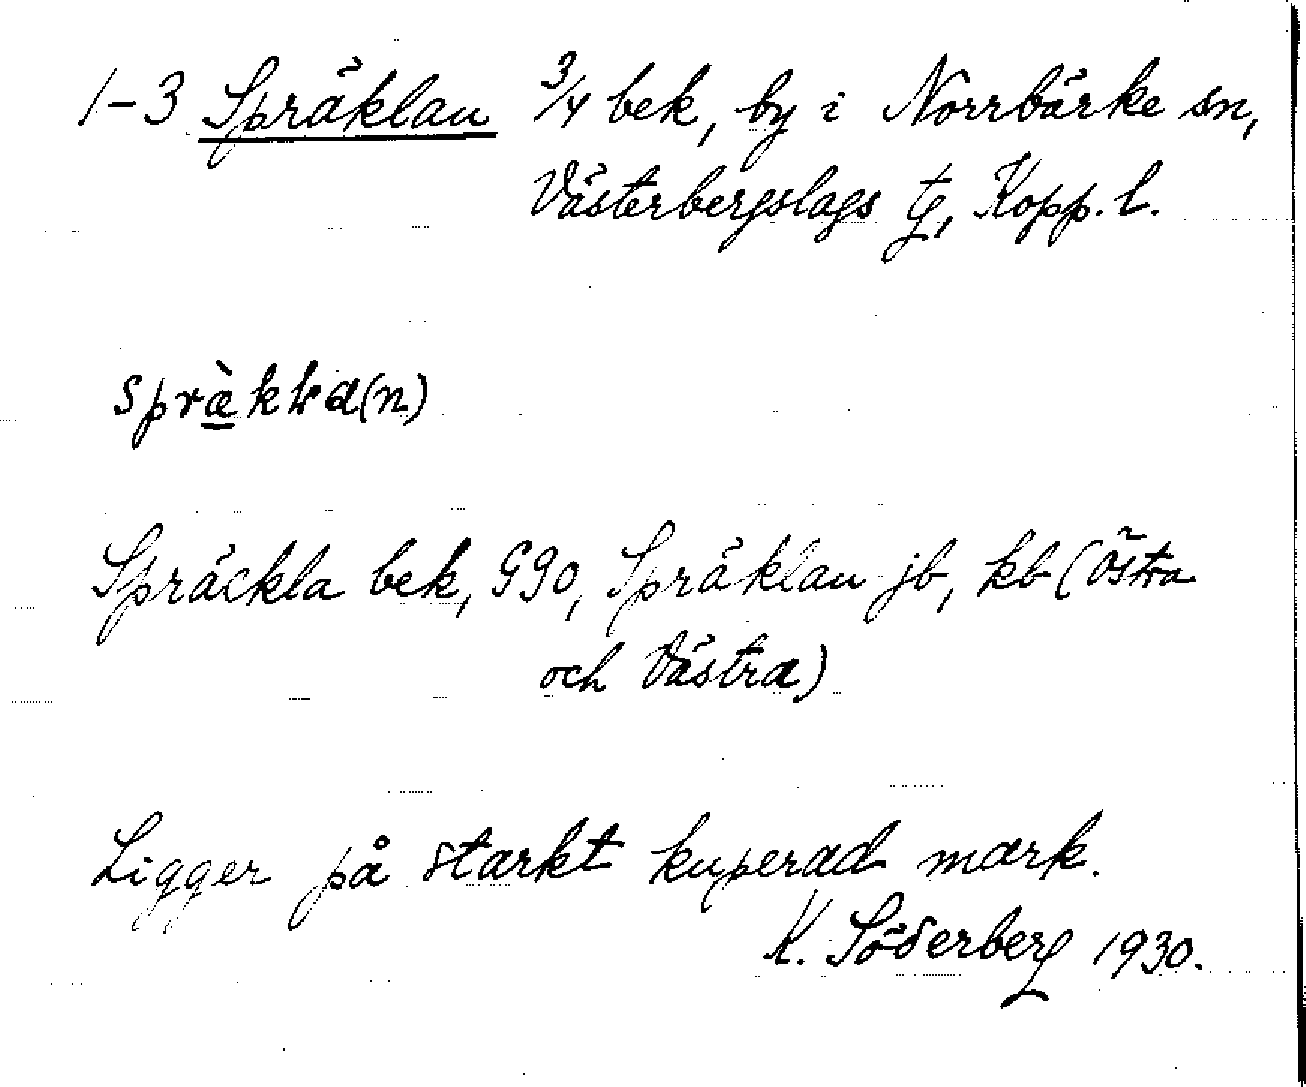 1-3 Spräklan 3/4 bek, by i Norrbärke sn,
Västerbergslags tg, Kopp. l.
Spräckla bek, G90, Spräklan jb, kb (Östra
och Västra)
Ligger på starkt kuperad mark.
K. Söderberg 1930.